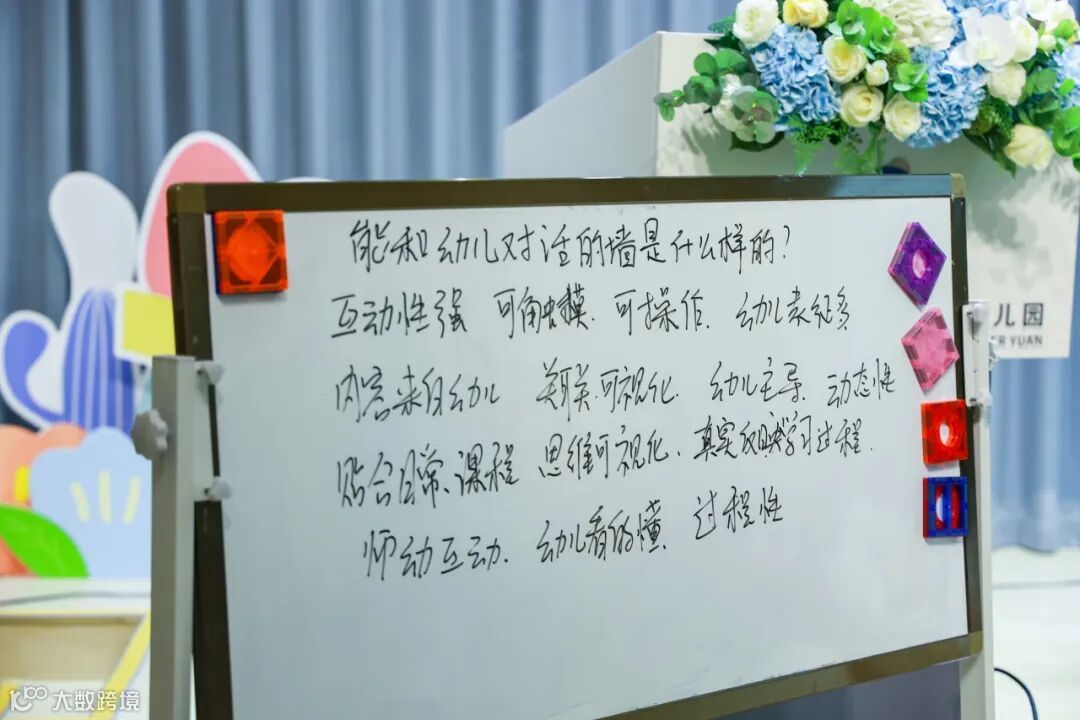 能和幼儿对话的墙是什么样的?
互动性强 可触摸. 可操作. 幼儿表征多
内容来自幼儿 关联.可视化. 幼儿主导. 动态性
贴合日常、课程 思维可视化、真实反映学习过程.
师幼互动. 幼儿看的懂. 过程性
儿园
ER YUAN
大数跨境